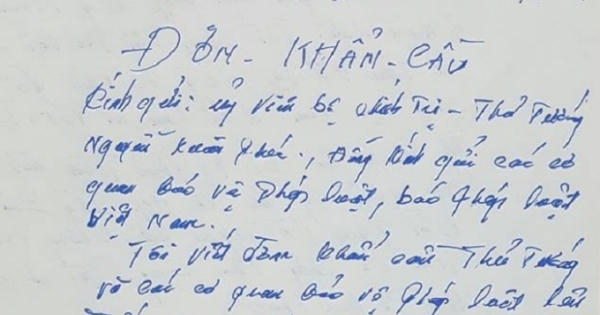 ĐƠN - KHẨN - CẦU
Kính gửi: ủy viên bộ chính Trị - Thủ Tướng
Nguyễn Xuân Phúc., Đồng kính gửi các cơ
quan bảo vệ Pháp luật, báo Pháp luật
Việt Nam.
Tôi viết đơn khẩn cầu Thủ Tướng
và các cơ quan bảo vệ pháp luật